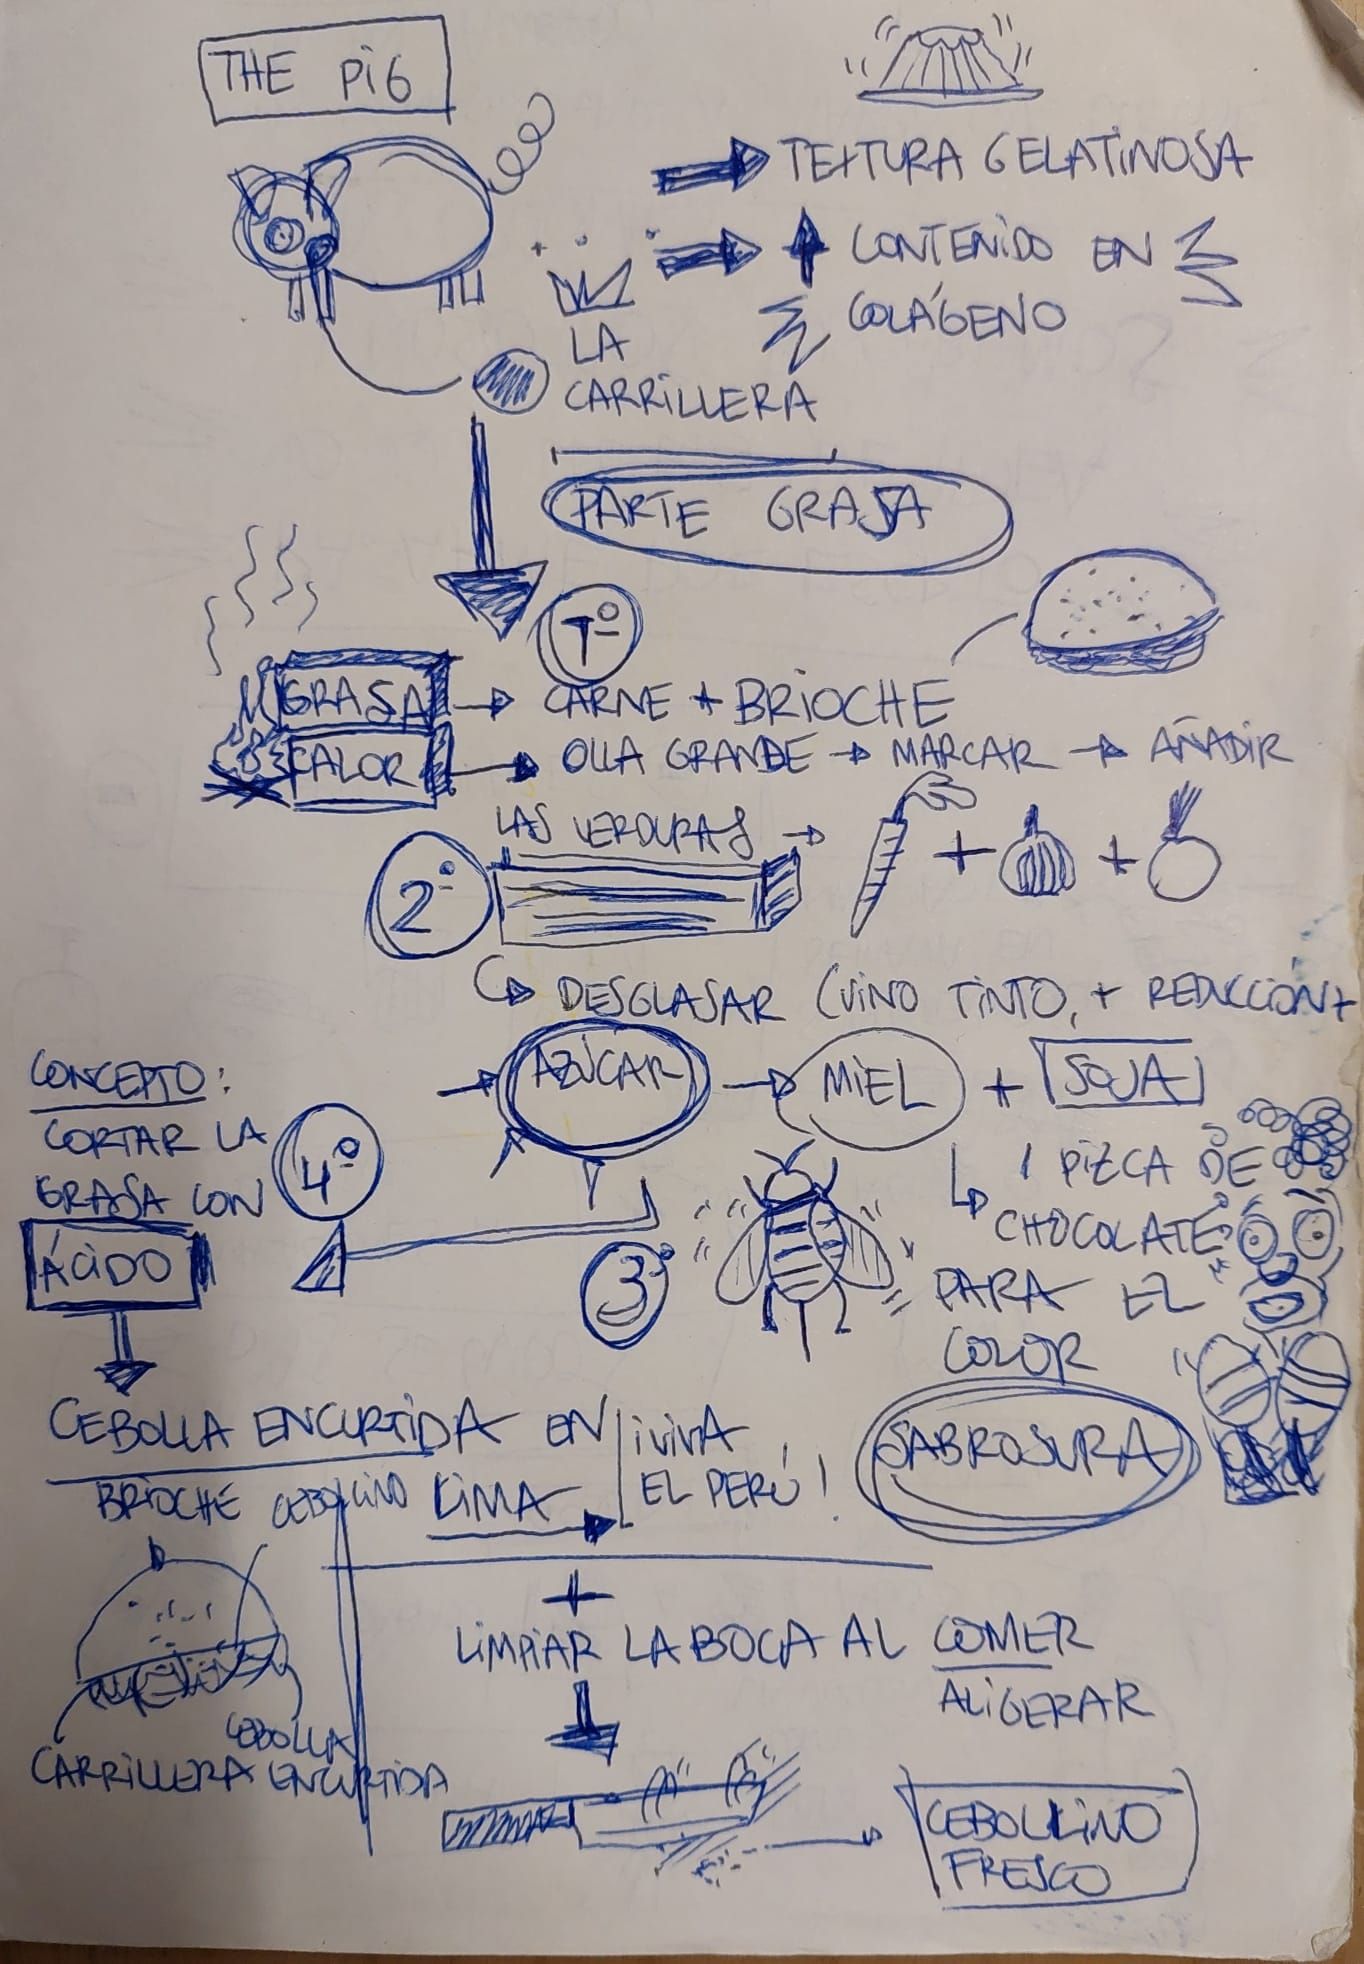 THE PiG
TEXTURA GELATINOSA
CONTENIDO EN
COLÁGENO
LA
CARRILLERA
PARTE GRASA
1º
GRASA → CARNE + BRIOCHE
CALOR → OLLA GRANDE → MARCAR → AÑADIR
LAS VERDURAS →
+ +
2º
DESGLASAR (VINO TINTO, + REDUCCION +
→ AZÚCAR → MIEL + SOJA
CONCEPTO:
CORTAR LA
GRASA CON
ÁCIDO
4º
3º
1 PIZCA DE
CHOCOLATE
PARA EL
COLOR
SABROSURA
CEBOLLA ENCURTIDA EN
LIMA →
¡VIVA
EL PERÚ!
BRIOCHE CEBOLLINO
CEBOLLA
CARRILLERA ENCURTIDA
+
LIMPIAR LA BOCA AL COMER
ALIGERAR
CEBOLLINO
FRESCO